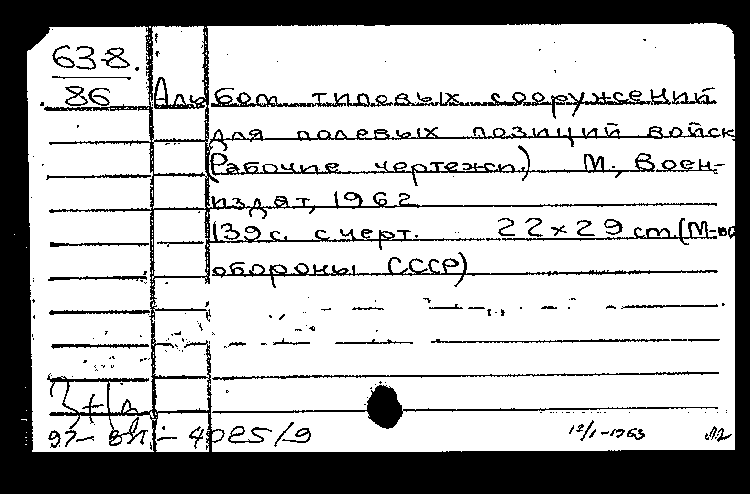 63-8.
86
Альбом типовых сооружений
для полевых позиций войск
(Рабочие чертежи.) М., Воен-
издат, 1962
139 с. с черт. 22×29 см. (М-во
обороны СССР)
3+1
12/I-1963